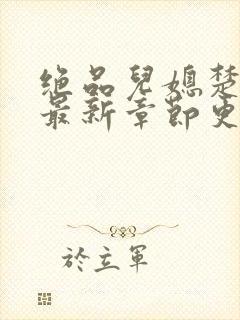 绝品兒媳楚
最新章節更
於立軍